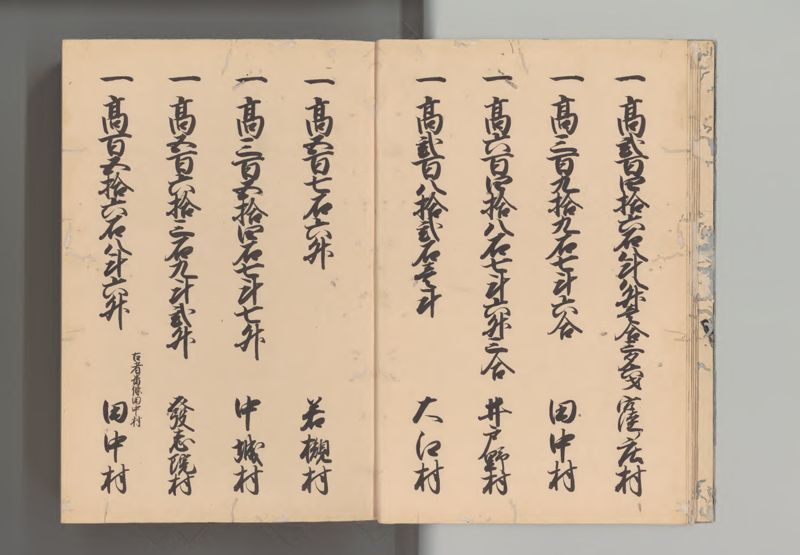 一高弐百四拾六石八斗八升壱合三夕 窪庄村
一高三百九拾九石七斗六合 田中村
一高六百四拾八石七斗六升三合 井戸野村
一高弐百八拾弐石壱斗 大江村
一高五百七石六升 若槻村
一高三百五拾四石七斗七升 中城村
一高五百六拾三石九斗弐升 發志院村
古者番條田中村
一高百五拾六石八斗六升 田中村